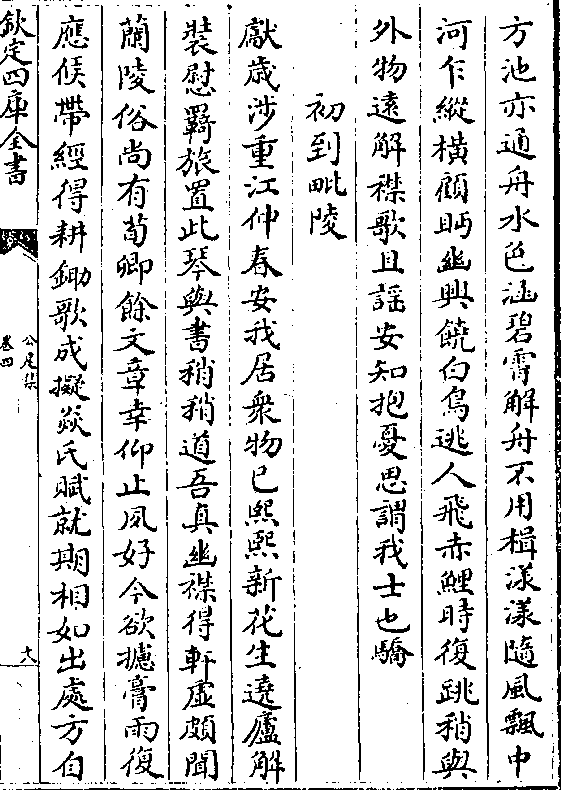 方池亦通舟水色涵碧霄解舟不用楫漾漾隨風飄中
河乍縱橫顧眄幽興饒白鳥逃人飛赤鯉時復跳稍與
外物遠解襟歌且謡安知抱憂思謂我士也驕
初到毗陵
獻歲涉重江仲春安我居衆物已熙熙新花生遶廬解
裝慰羇旅置此琴與書稍稍道吾真幽襟得軒虛頗聞
蘭陵俗尚有荀卿餘文章幸仰止夙好今欲攄膏雨復
應候帶經得耕鋤歌成擬焱氏賦就期相如出處方自
欽定四庫全書
公是集
卷四
十八